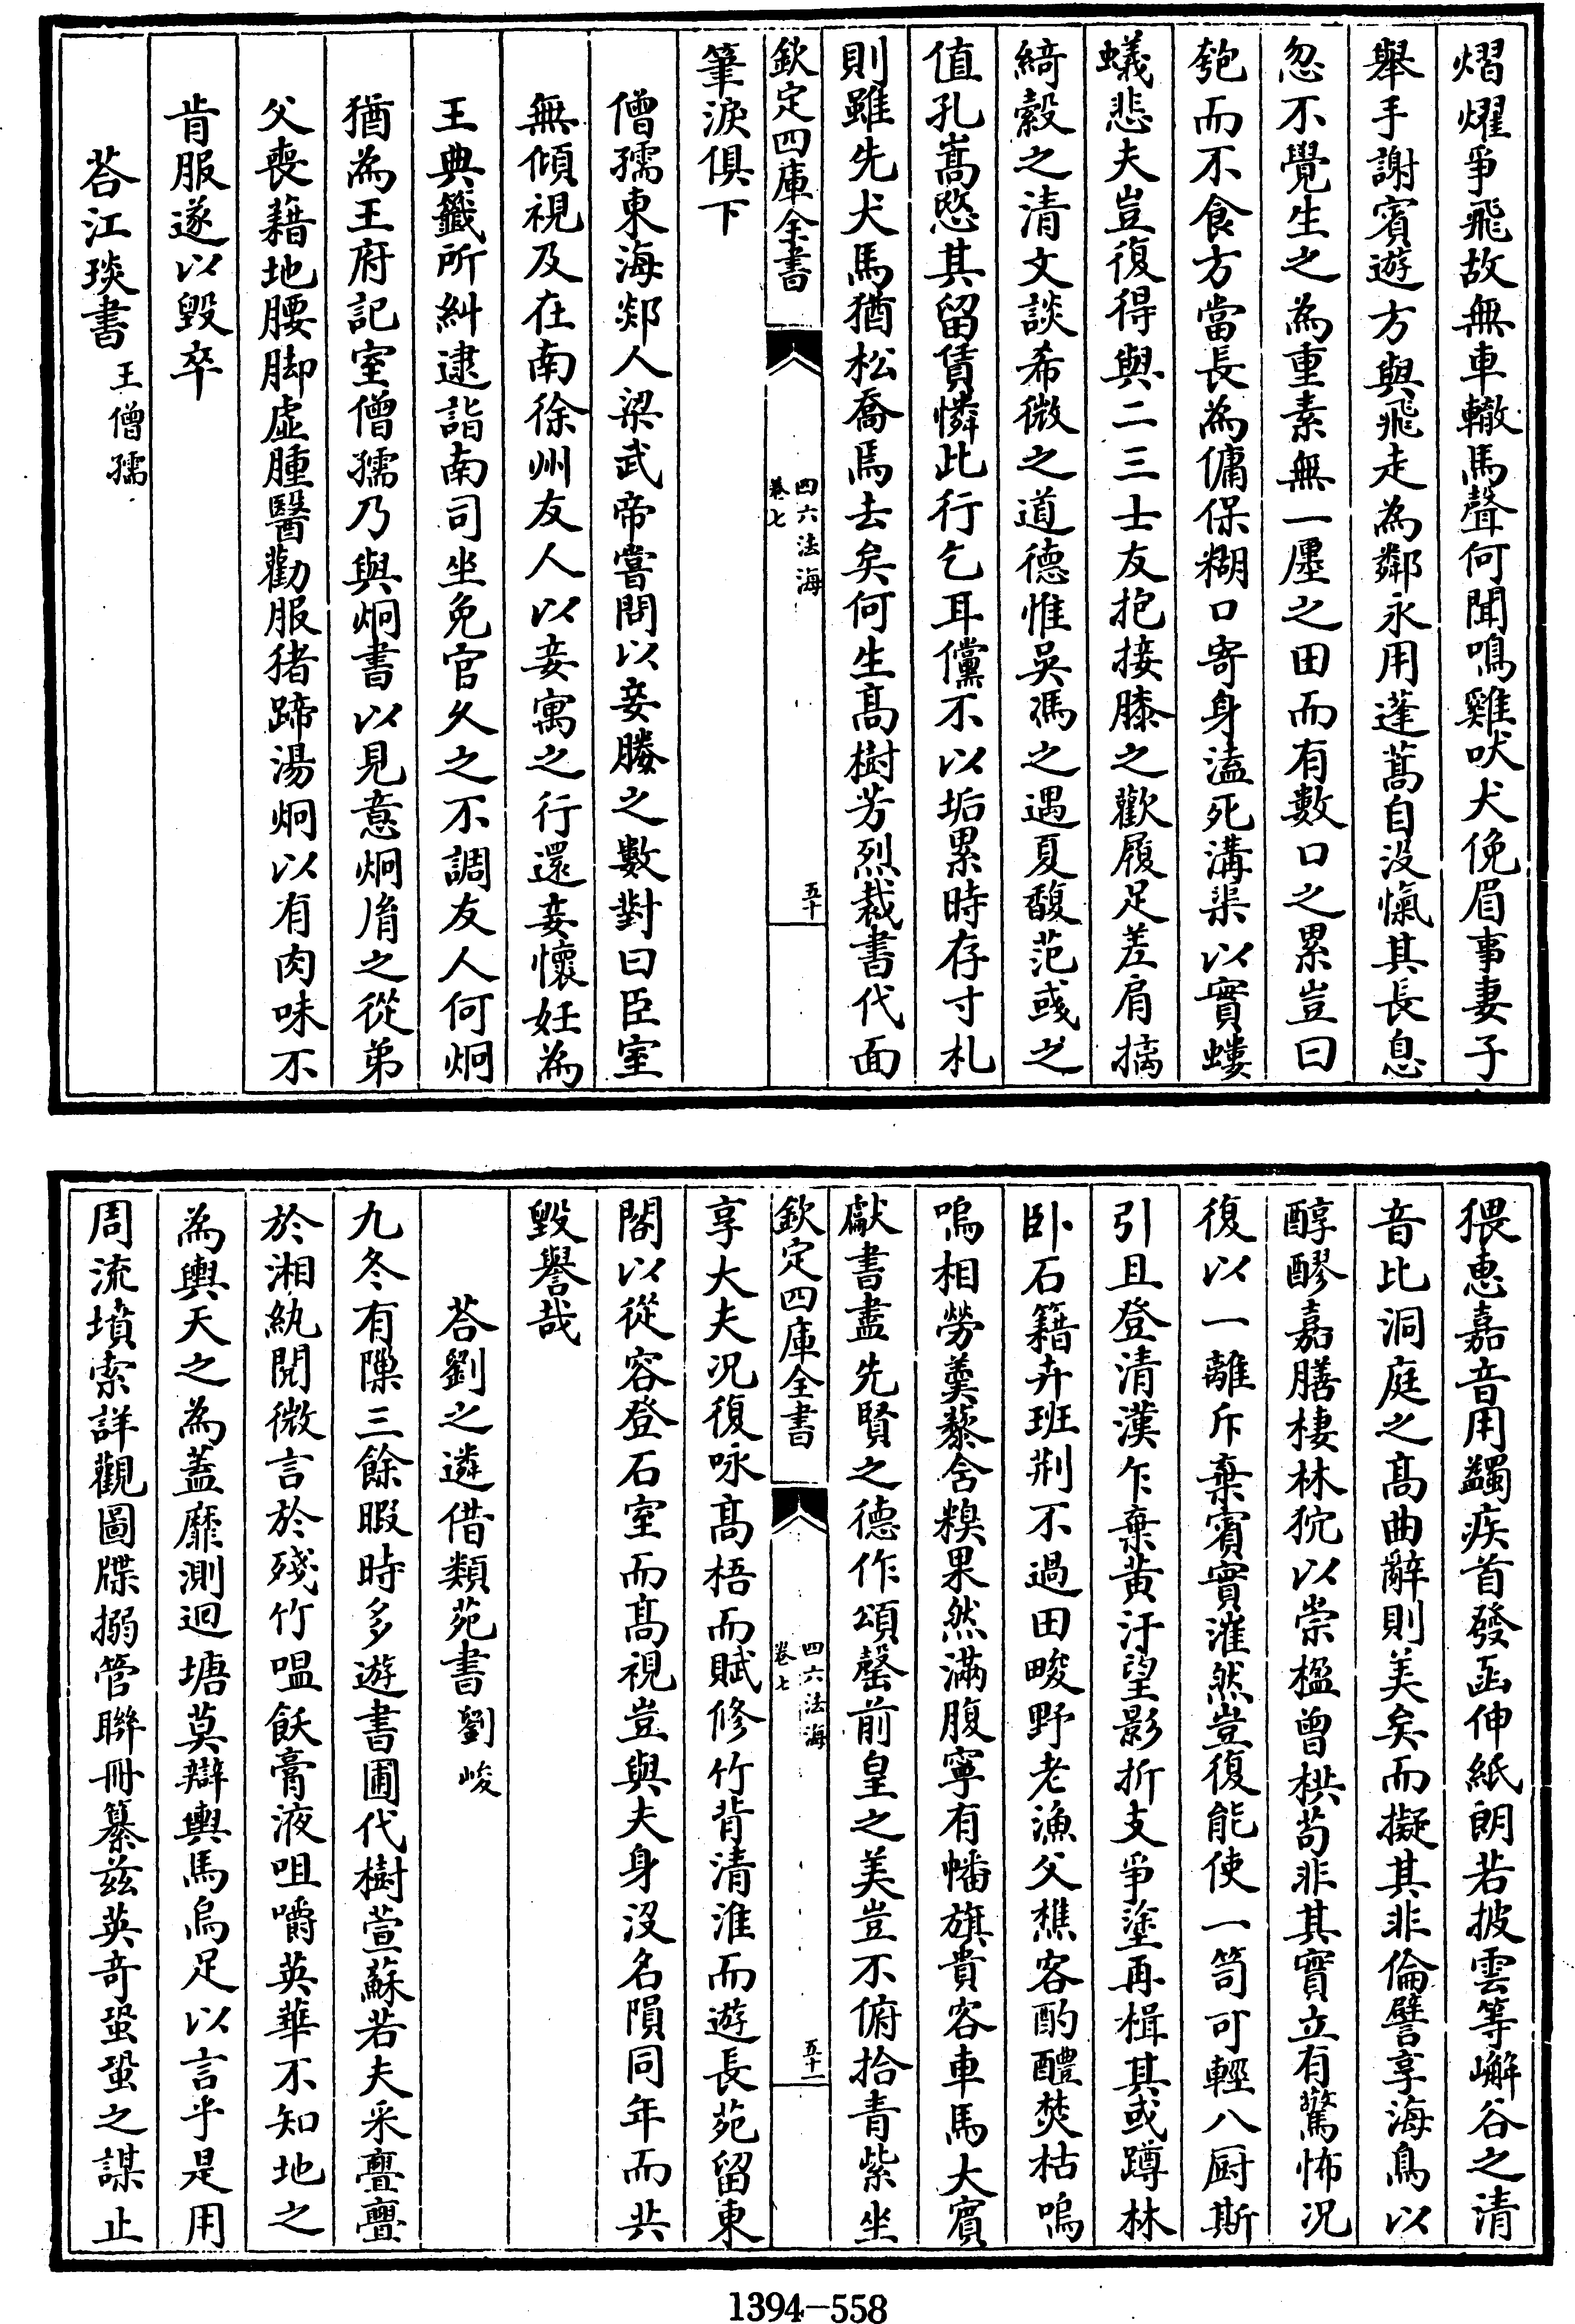 熠燿爭飛故無車轍馬聲何聞鳴雞吠犬俛眉事妻子
舉手謝賓遊方與飛走為鄰永用蓬蒿自没愾其長息
忽不覺生之為重素無一廛之田而有數口之累豈曰
匏而不食方當長為傭保糊口寄身溘死溝渠以實螻
蟻悲夫豈復得與二三士友抱接膝之歡履足差肩摛
綺縠之清文談希微之道德惟吳馮之遇夏馥范彧之
值孔嵩愍其留賃憐此行乞耳儻不以垢累時存寸札
則雖先犬馬猶松喬焉去矣何生髙樹芳烈裁書代面
筆淚俱下
欽定四庫全書
四六法海
卷七
五十
僧孺東海郯人梁武帝嘗問以妾媵之數對曰臣室
無傾視及在南徐州友人以妾寓之行還妾懷妊為
王典籤所糾逮詣南司坐免官久之不調友人何炯
猶為王府記室僧孺乃與炯書以見意炯胤之從弟
父喪藉地腰脚虛腫醫勸服猪蹄湯炯以有肉味不
肯服遂以毁卒
荅江琰書 王僧孺
猥惠嘉音用蠲疾首發函伸紙朗若披雲等嶰谷之清
音比洞庭之髙曲辭則美矣而擬其非倫譬享海鳥以
醇醪嘉膳棲林狖以崇楹曾栱苟非其實立有驚怖况
復以一離斥棄賓實漼然豈復能使一笥可輕八厨斯
引且登清漢乍棄黄汙望影折支爭塗再楫其或蹲林
卧石籍卉班荆不過田畯野老漁父樵客酌醴焚枯嗚
嗚相勞羮藜含糗果然滿腹寧有幡旗貴客車馬大賓
獻書盡先賢之德作頌罄前皇之美豈不俯拾青紫坐
欽定四庫全書
四六法海
卷七
五十一
享大夫况復咏髙梧而賦修竹背清淮而遊長苑留東
閣以從容登石室而髙視豈與夫身沒名隕同年而共
毀譽哉
荅劉之遴借類苑書 劉峻
九冬有隟三餘暇時多遊書圃代樹萱蘇若夫采亹亹
於湘紈閱微言於殘竹嗢飫膏液咀嚼英華不知地之
為輿天之為蓋靡測迴塘莫辯輿馬烏足以言乎是用
周流墳索詳觀圖牒搦管聯冊纂兹英奇蛩蛩之謀止
1394-558